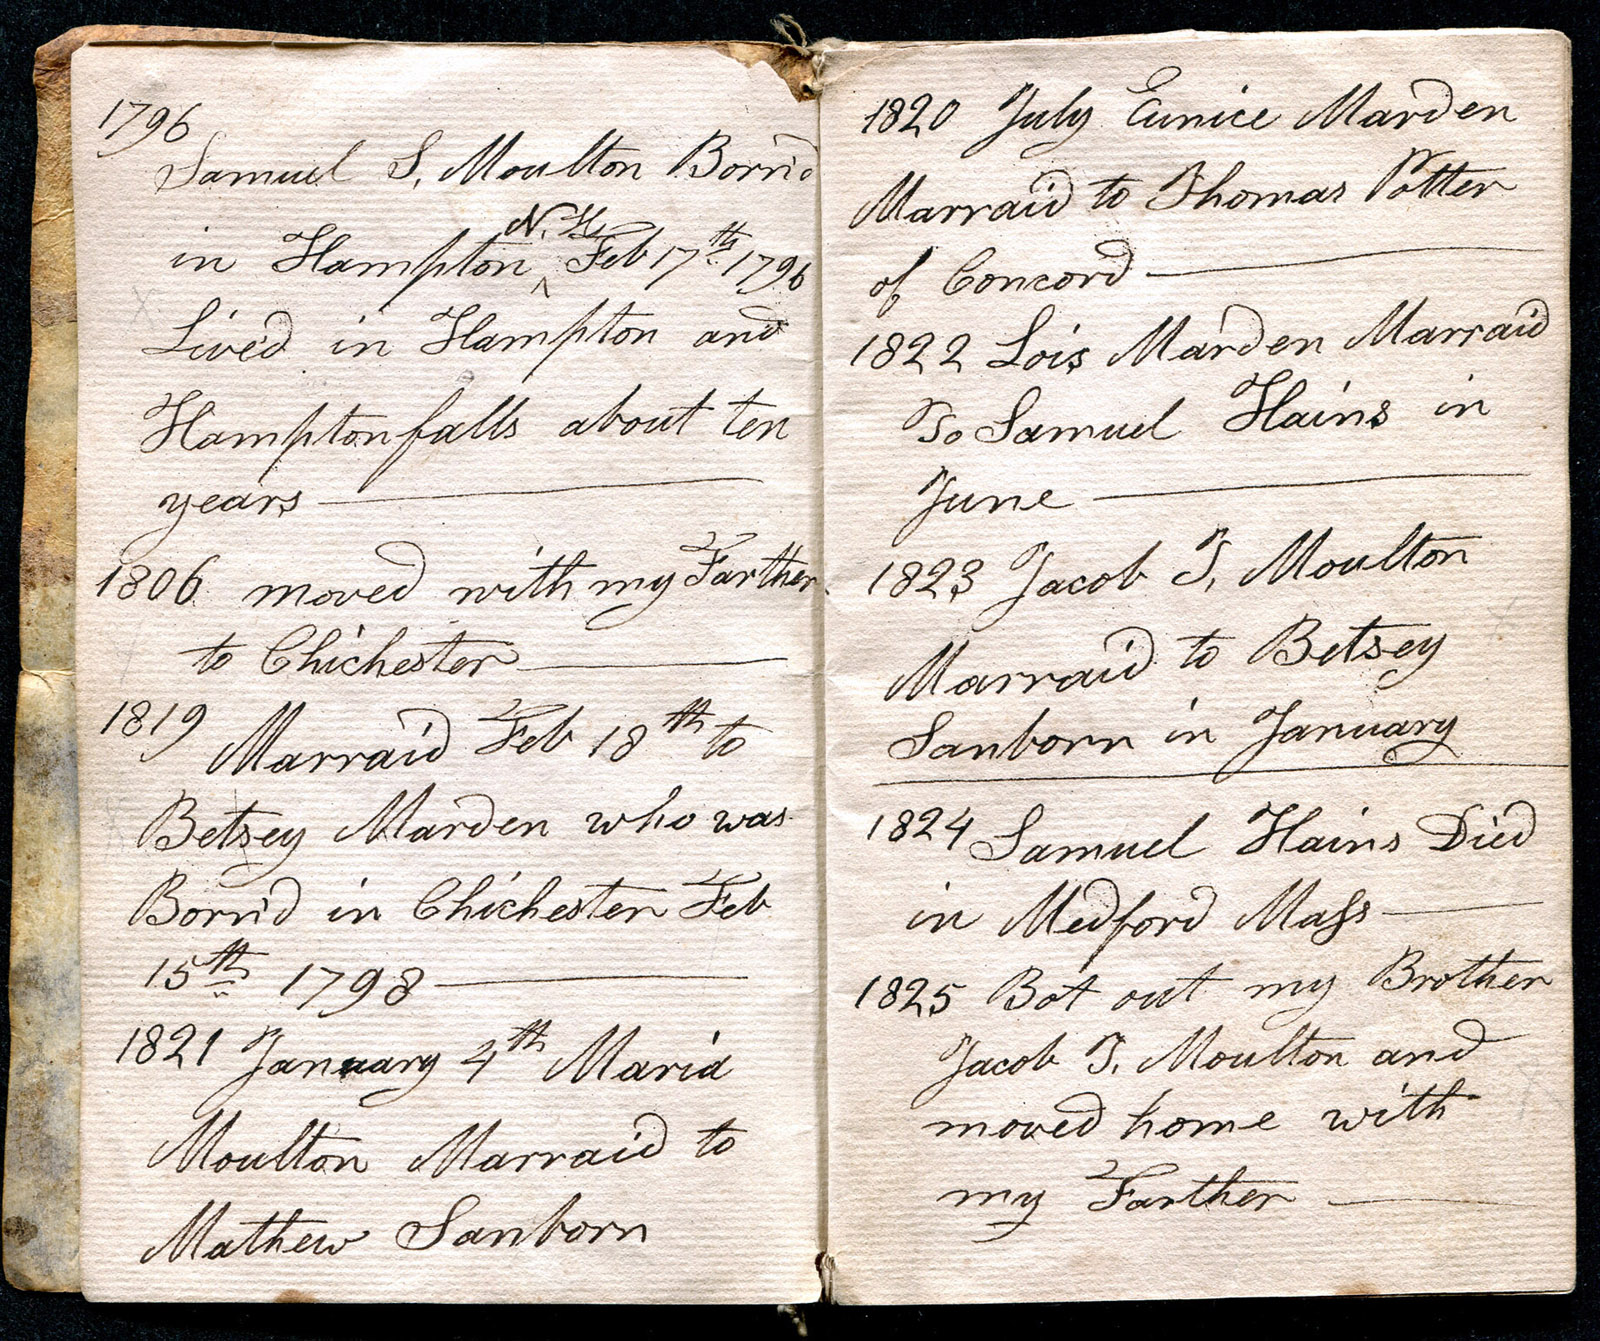 1796
Samuel S, Moulton Born'd
N. H
in Hampton ^ Feb 17th 1796
Lived in Hampton and
Hamptonfalls about ten
years
1806 moved with my Farther
to Chichester
1819 Marraid Feb 18th to
Betsey Marden who was
Born'd in Chichester Feb
15th 1798
1821 January 4th Maria
Moulton Marraid to
Mathew Sanborn
1820 July Eunice Marden
Marraid to Thomas Potter
of Concord
1822 Lois Marden Marraid
To Samuel Hains in
June
1823 Jacob T, Moulton
Marraid to Betsey
Sanborn in January
1824 Samuel Hains Died
in Medford Maſs
1825 Bot out my Brother
Jacob T. Moulton and
moved home with
my Farther